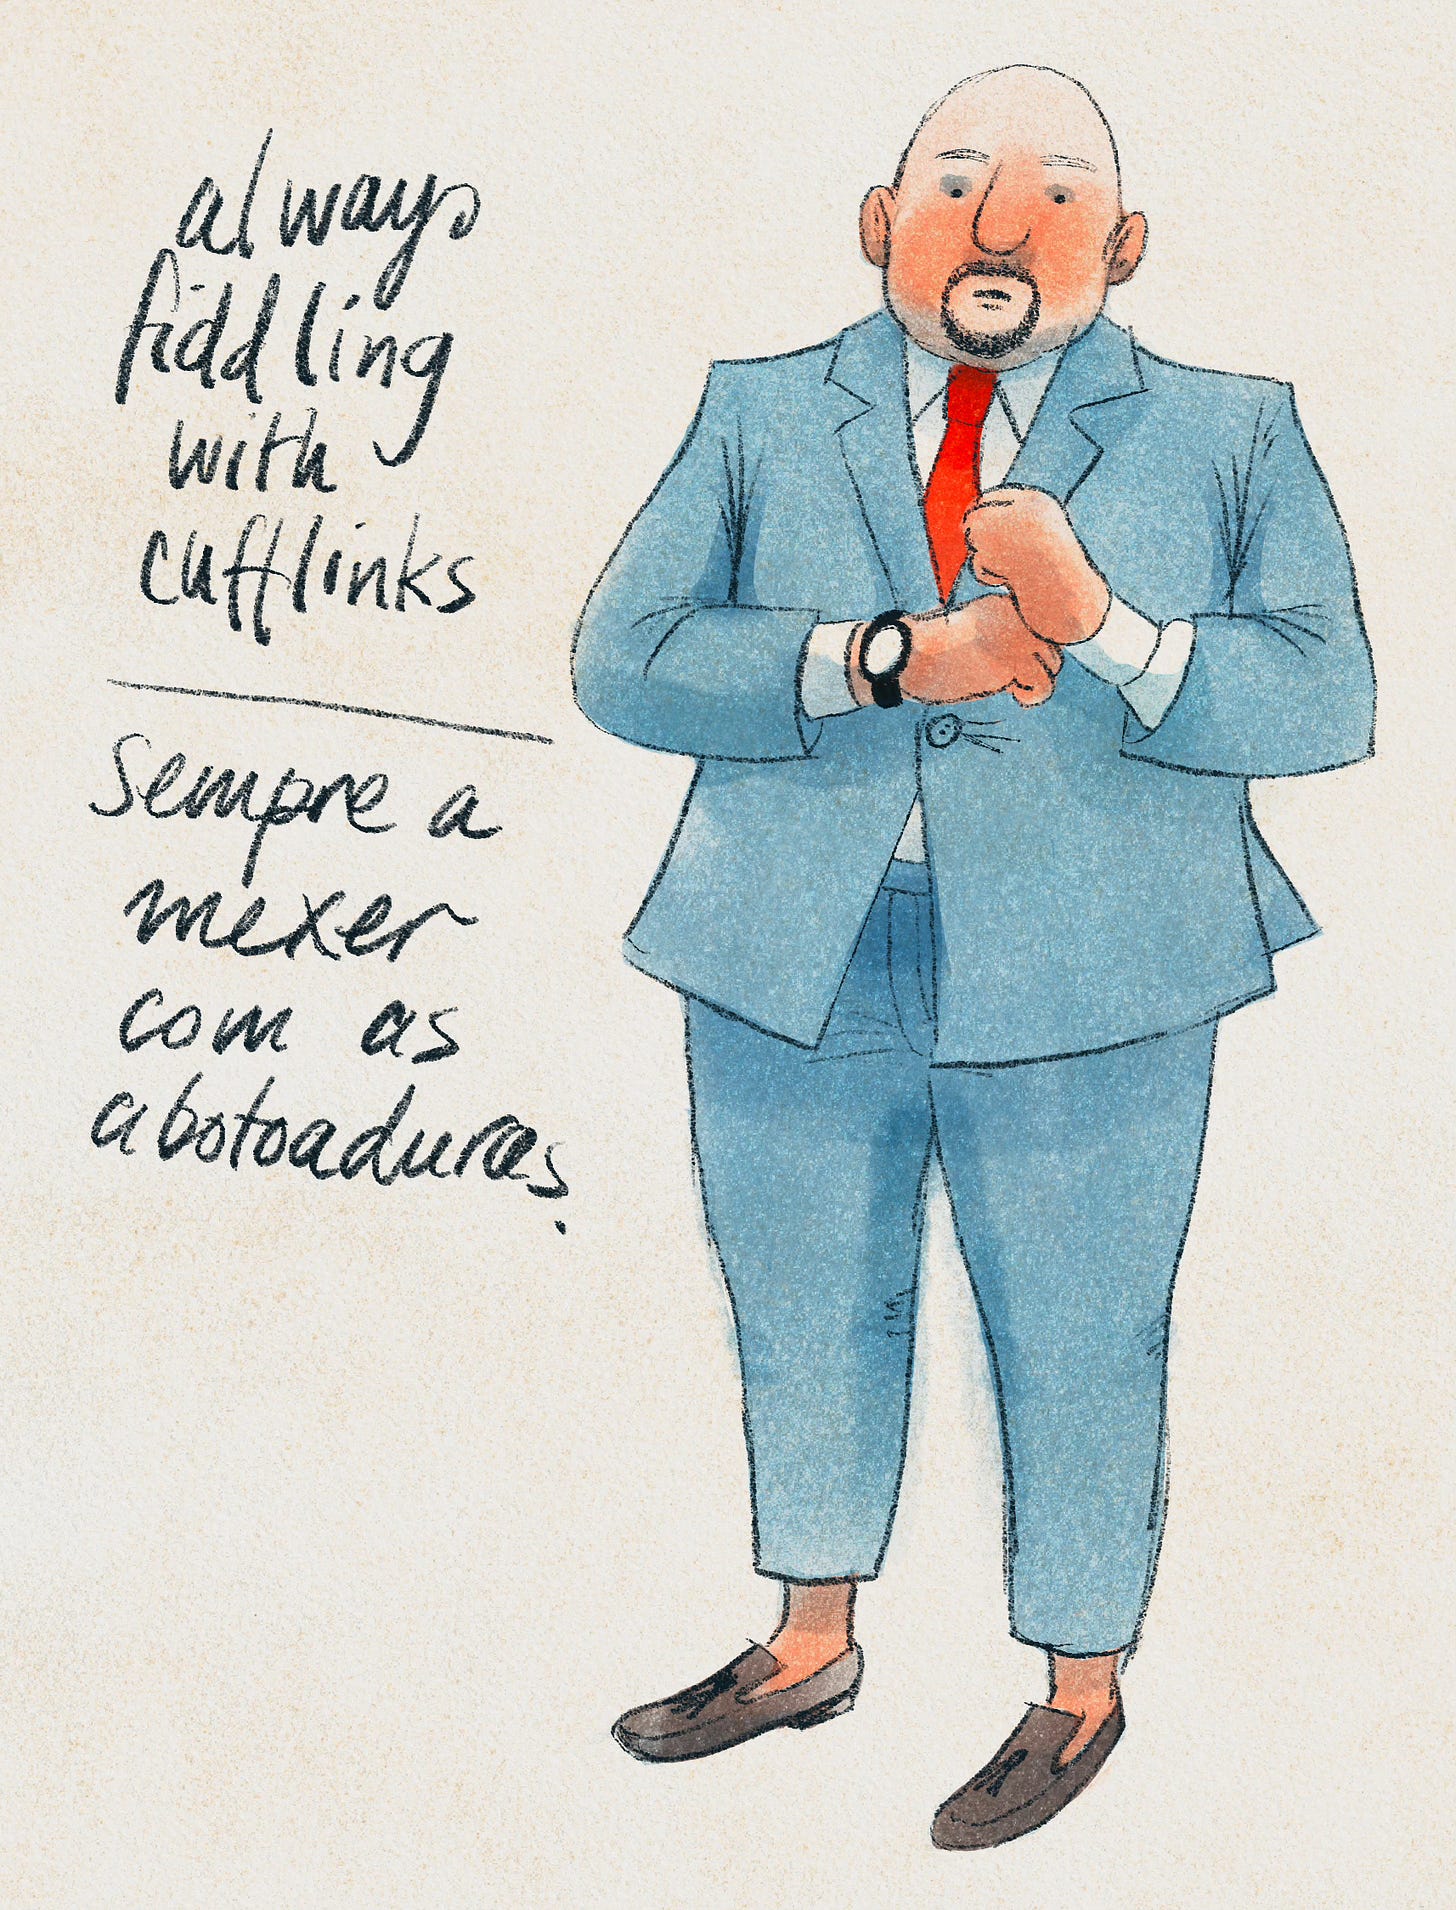 always
fiddling
with
cufflinks
Sempre a
mexer
com as
abotoaduras.